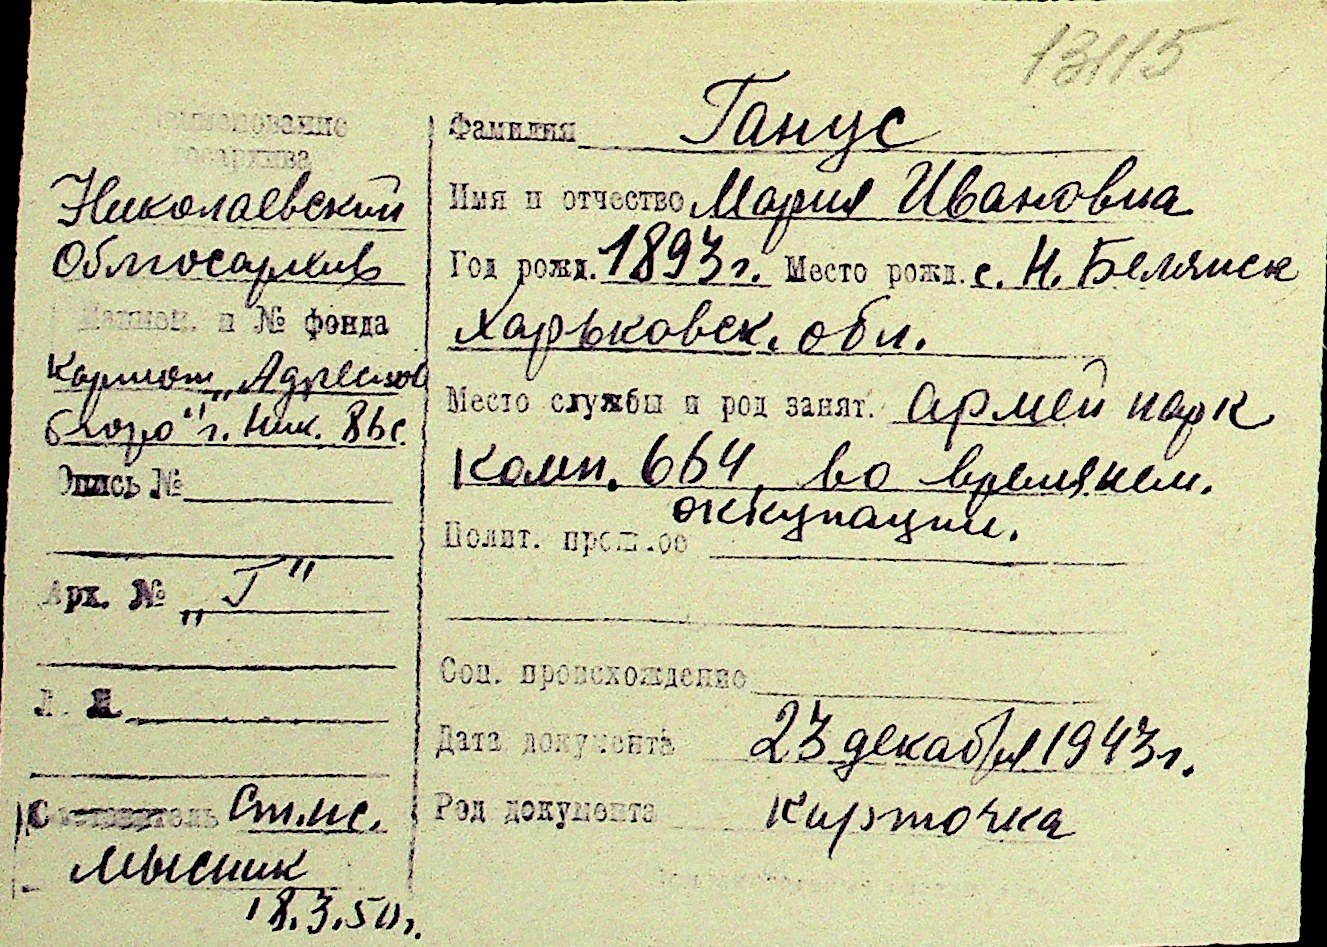 13115
наименование
госархива
Николаевский
Облгосархив
Наимен. и № фонда
Картот. „Адресное
бюро" г. Ник.
Опись №
Арх. № „Г"
Л. Л.
Составитель Ст. нс.
Мысник
18.3.50г.
Фамилия Ганус
Имя и отчество Мария Ивановна
Год рожд. 1893г. Место рожд. с. Н. Белянск
Харьковск. обл.
Место службы и род занят. армей парк
комп. 664 во время нем.
оккупации.
Полит. прошлое
Соц. происхождение
Дата документа 23 декабря 1943г.
Род документа Карточка